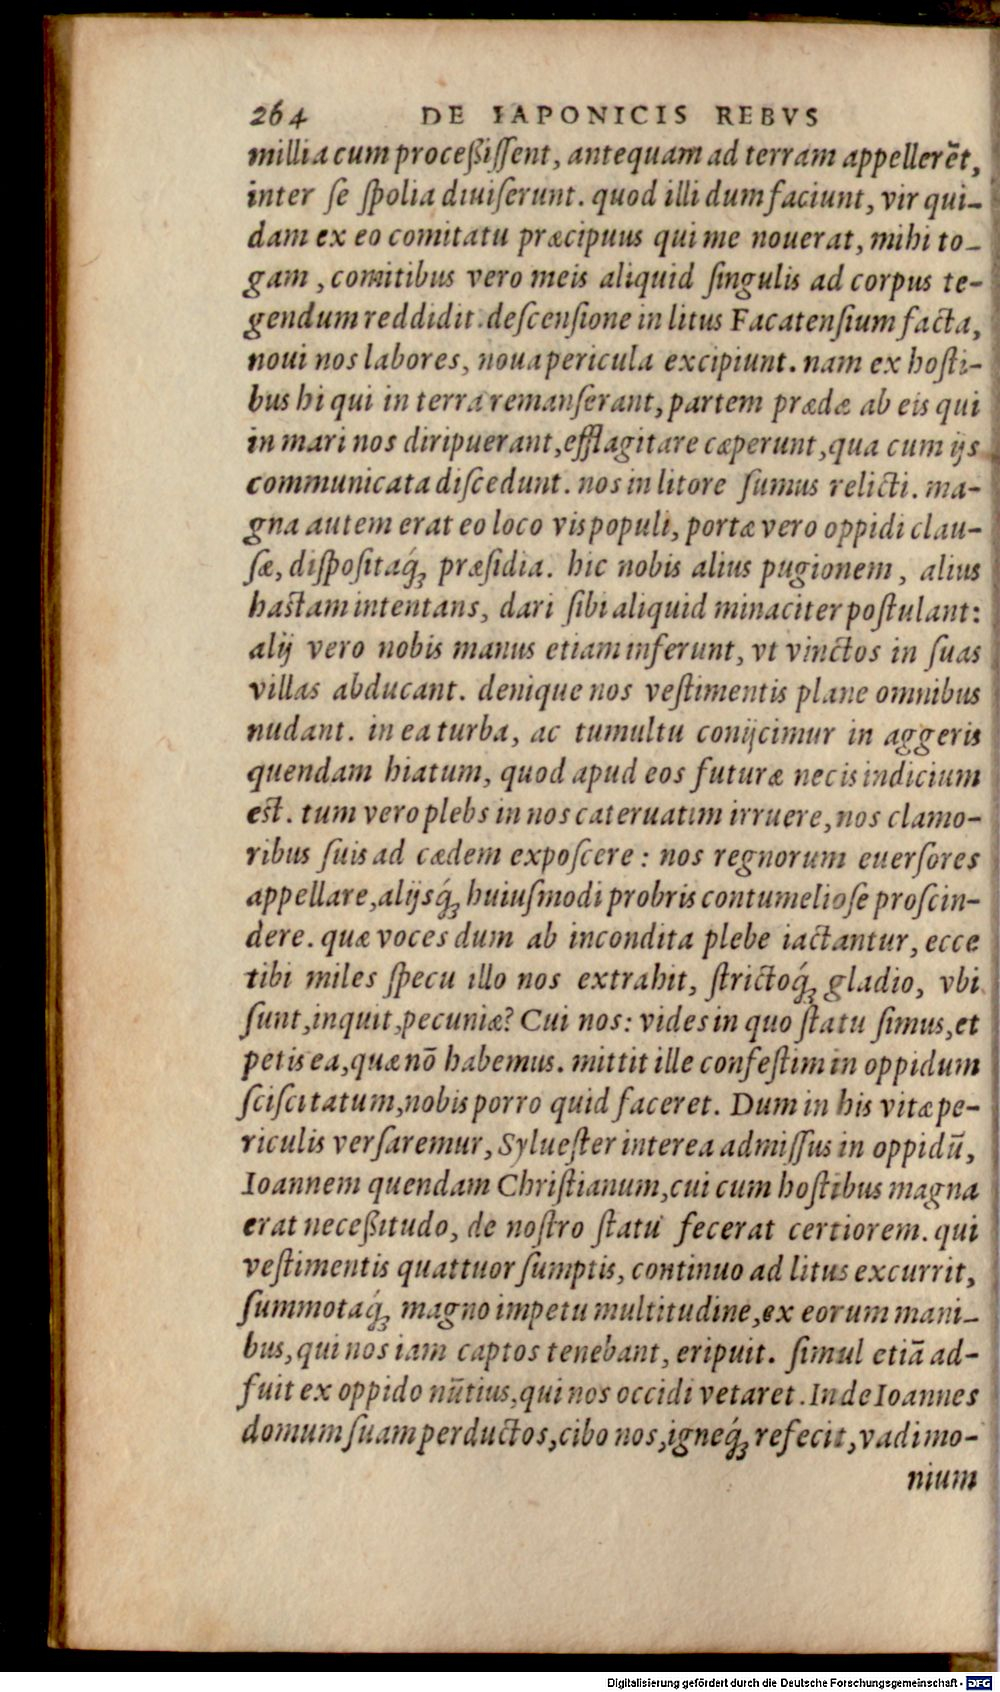 264 DE IAPONICIS REBVS
millia cum proceßiſſent, antequam ad terram appellerēt,
inter ſe ſpolia diuiſerunt. quod illi dum faciunt, vir qui-
dam ex eo comitatu præcipuus qui me nouerat, mihi to-
gam, comitibus vero meis aliquid ſingulis ad corpus te-
gendum reddidit. deſcenſione in litus Facatenſium facta,
noui nos labores, noua pericula excipiunt. nam ex hoſti-
bus hi qui in terra remanſerant, partem prædæ ab eis qui
in mari nos diripuerant, efflagitare cæperunt, qua cum ijs
communicata diſcedunt. nos in litore ſumus relicti. ma-
gna autem erat eo loco vis populi, portæ vero oppidi clau-
ſæ, diſpoſitaq́ꝫ præſidia. hic nobis alius pugionem, alius
haſtam intentans, dari ſibi aliquid minaciter poſtulant:
alij vero nobis manus etiam inferunt, vt vinctos in ſuas
villas abducant. denique nos veſtimentis plane omnibus
nudant. in ea turba, ac tumultu conijcimur in aggeris
quendam hiatum, quod apud eos futuræ necis indicium
eſt. tum vero plebs in nos cateruatim irruere, nos clamo-
ribus ſuis ad cædem expoſcere: nos regnorum euerſores
appellare, alijsq́ꝫ huiuſmodi probris contumelioſe proſcin-
dere. quæ voces dum ab incondita plebe iactantur, ecce
tibi miles ſpecu illo nos extrahit, ſtrictoq́ꝫ gladio, vbi
ſunt, inquit, pecuniæ? Cui nos: vides in quo ſtatu ſimus, et
petis ea, quæ nō habemus. mittit ille confeſtim in oppidum
ſciſcitatum, nobis porro quid faceret. Dum in his vitæ pe-
riculis verſaremur, Sylueſter interea admiſſus in oppidū,
Ioannem quendam Chriſtianum, cui cum hoſtibus magna
erat neceßitudo, de noſtro ſtatu fecerat certiorem. qui
veſtimentis quattuor ſumptis, continuo ad litus excurrit,
ſummotaq́ꝫ magno impetu multitudine, ex eorum mani-
bus, qui nos iam captos tenebant, eripuit. ſimul etiā ad-
fuit ex oppido nūtius, qui nos occidi vetaret. Inde Ioannes
domum ſuam perductos, cibo nos, igneq́ꝫ refecit, vadimo-
nium
Digitalisierung gefördert durch die Deutsche Forschungsgemeinschaft - DFG